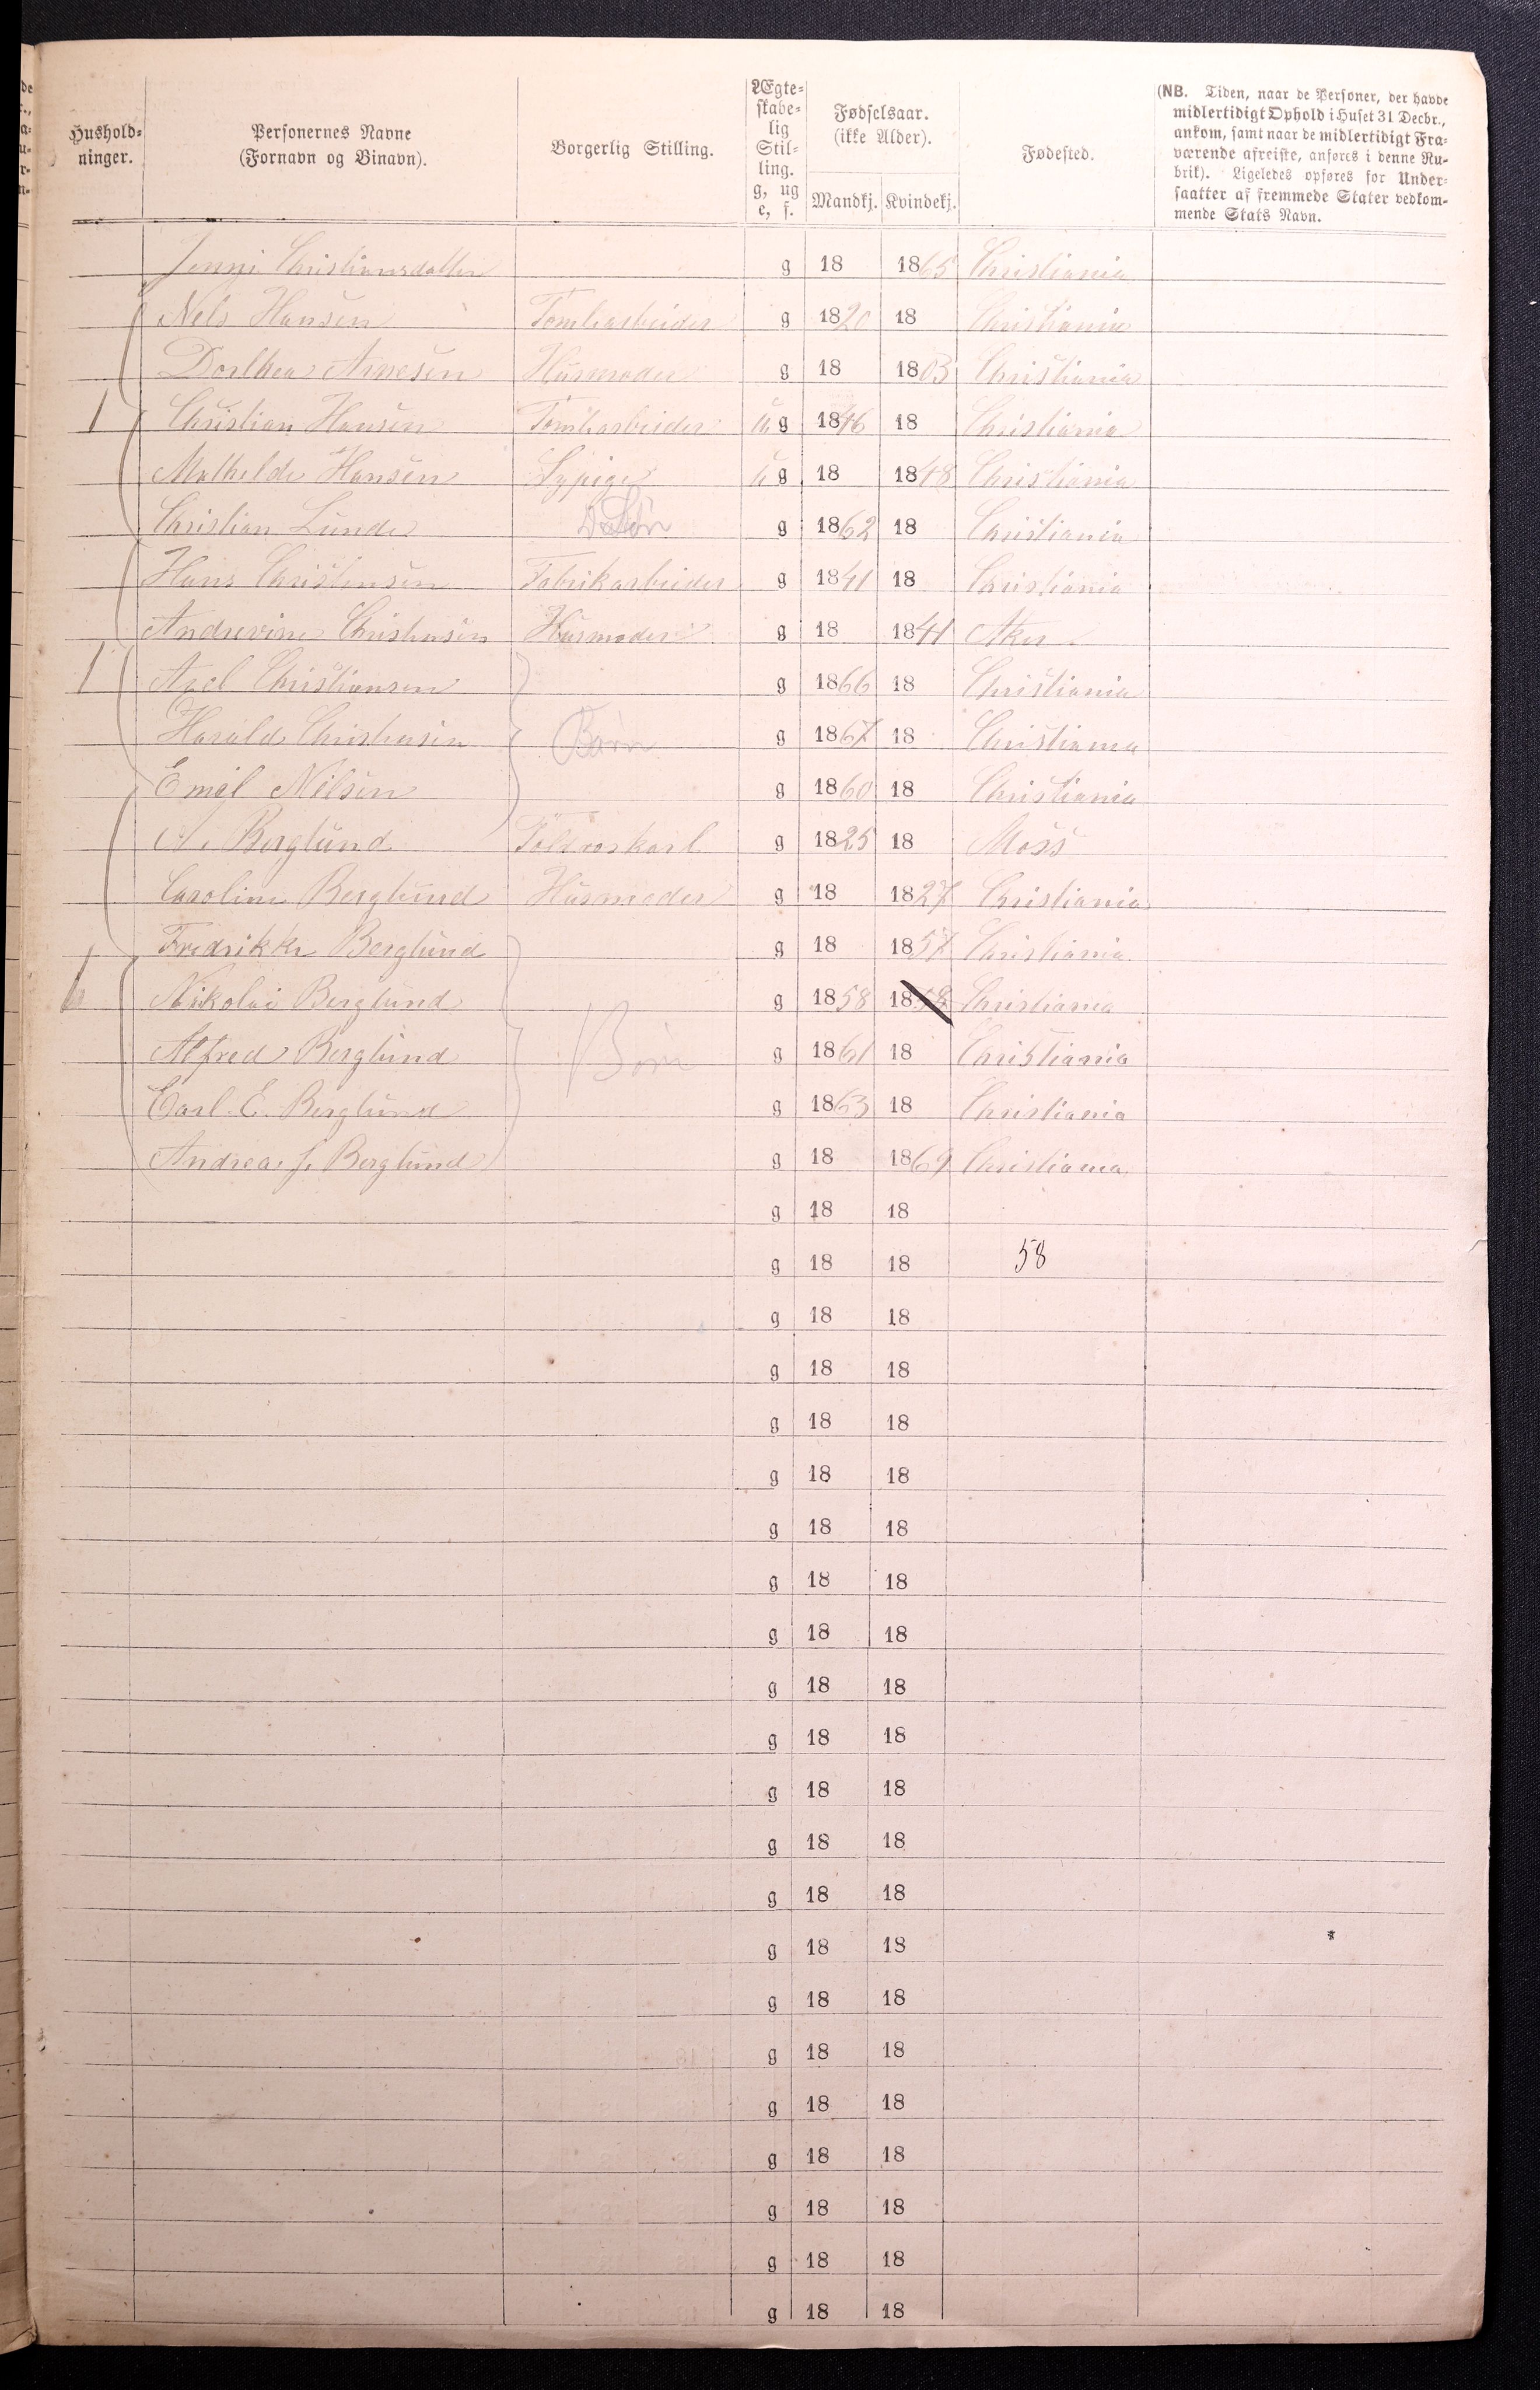 Hushold-
ninger.
Personernes Navne
(Fornavn og Binavn).
Borgerlig Stilling.
Ægte-
skabe-
lig
Stil-
ling.
g, ug
e, f.
Fødselsaar.
(ikke Alder).
Mandkj. Kvindekj.
Fødested.
(NB. Tiden, naar de Personer, der havde
midlertidigt Ophold i Huset 31 Decbr.,
ankom, samt naar de midlertidigt Fra-
værende afreiste, anføres i denne Ru-
brik). Ligeledes opføres for Under-
saatter af fremmede Stater vedkom-
mende Stats Navn.
Jenni Christiansdatter g 18 1865 Christiania
Nels Hansen Tomtearbeider g 1820 18 Christiania
Dorthea Arnesen Husmoder g 18 1803 Christiania
1 Christian Hansen Tomtearbeider u g 1846 18 Christiania
Mathilde Hansen Sypige u g 18 1848 Christiania
Christian Lunde Søn g 1862 18 Christiania
Hans Christensen Fabrikarbeider g 1841 18 Christiania
Andrevine Christensen Husmoder g 18 1841 Aker
1 Axel Christiansen g 1866 18 Christiania
Harald Christensen Børn g 1867 18 Christiania
Emil Nilsen g 1860 18 Christiania
A. Berglund g 1825 18 Moss
Caroline Berglund Husmoder g 18 1827 Christiania
Fredrikke Berglund g 18 1857 Christiania
1 Nikolai Berglund g 1858 1858 Christiania
Alfred Berglund Børn g 1861 18 Christiania
Carl E. Berglund g 1863 18 Christiania
Andrea J. Berglund g 18 1869 Christiania
g 18 18
g 18 18 58
g 18 18
g 18 18
g 18 18
g 18 18
g 18 18
g 18 18
g 18 18
g 18 18
g 18 18
g 18 18
g 18 18
g 18 18
g 18 18
g 18 18
g 18 18
g 18 18
g 18 18
g 18 18
g 18 18
g 18 18